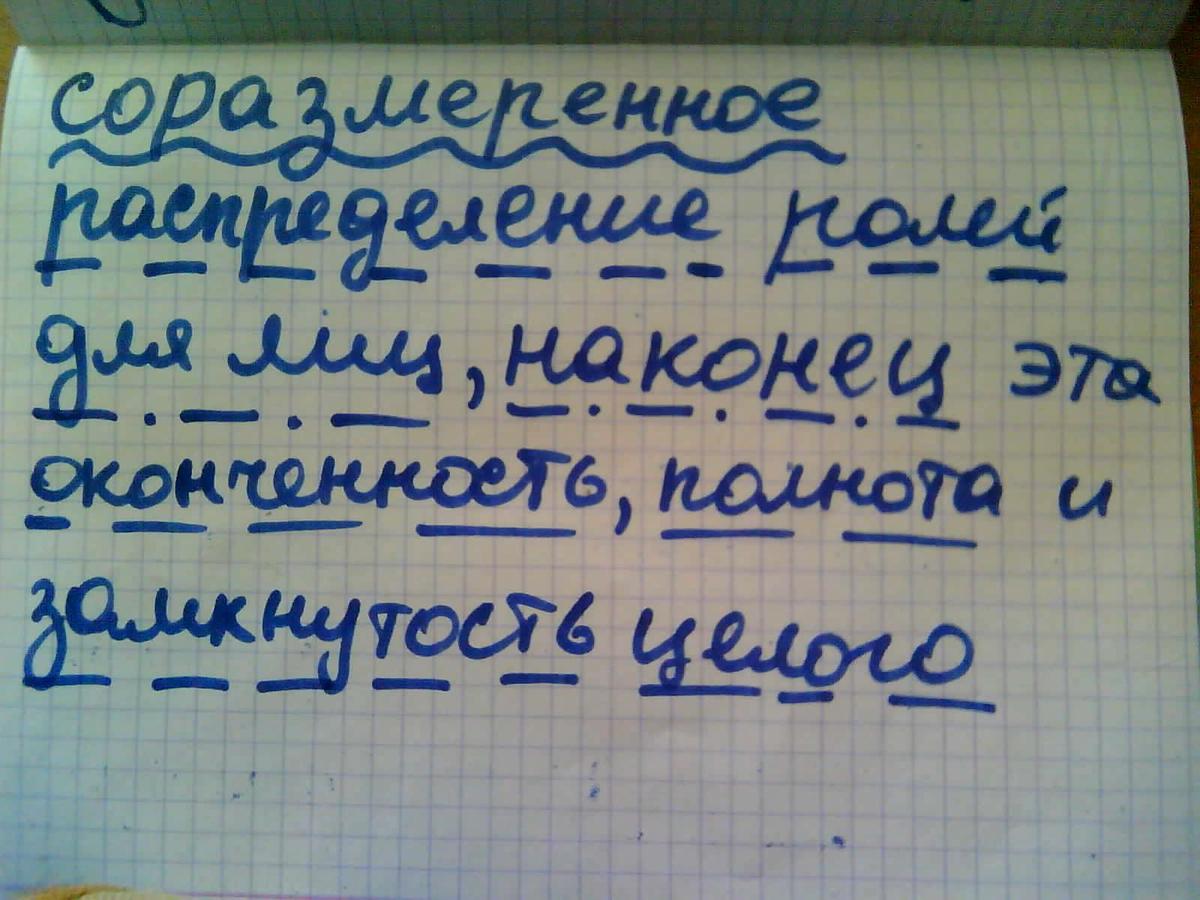 соразмеренное
распределение ролей
для лиц, наконец эта
оконченность, полнота и
замкнутость целого